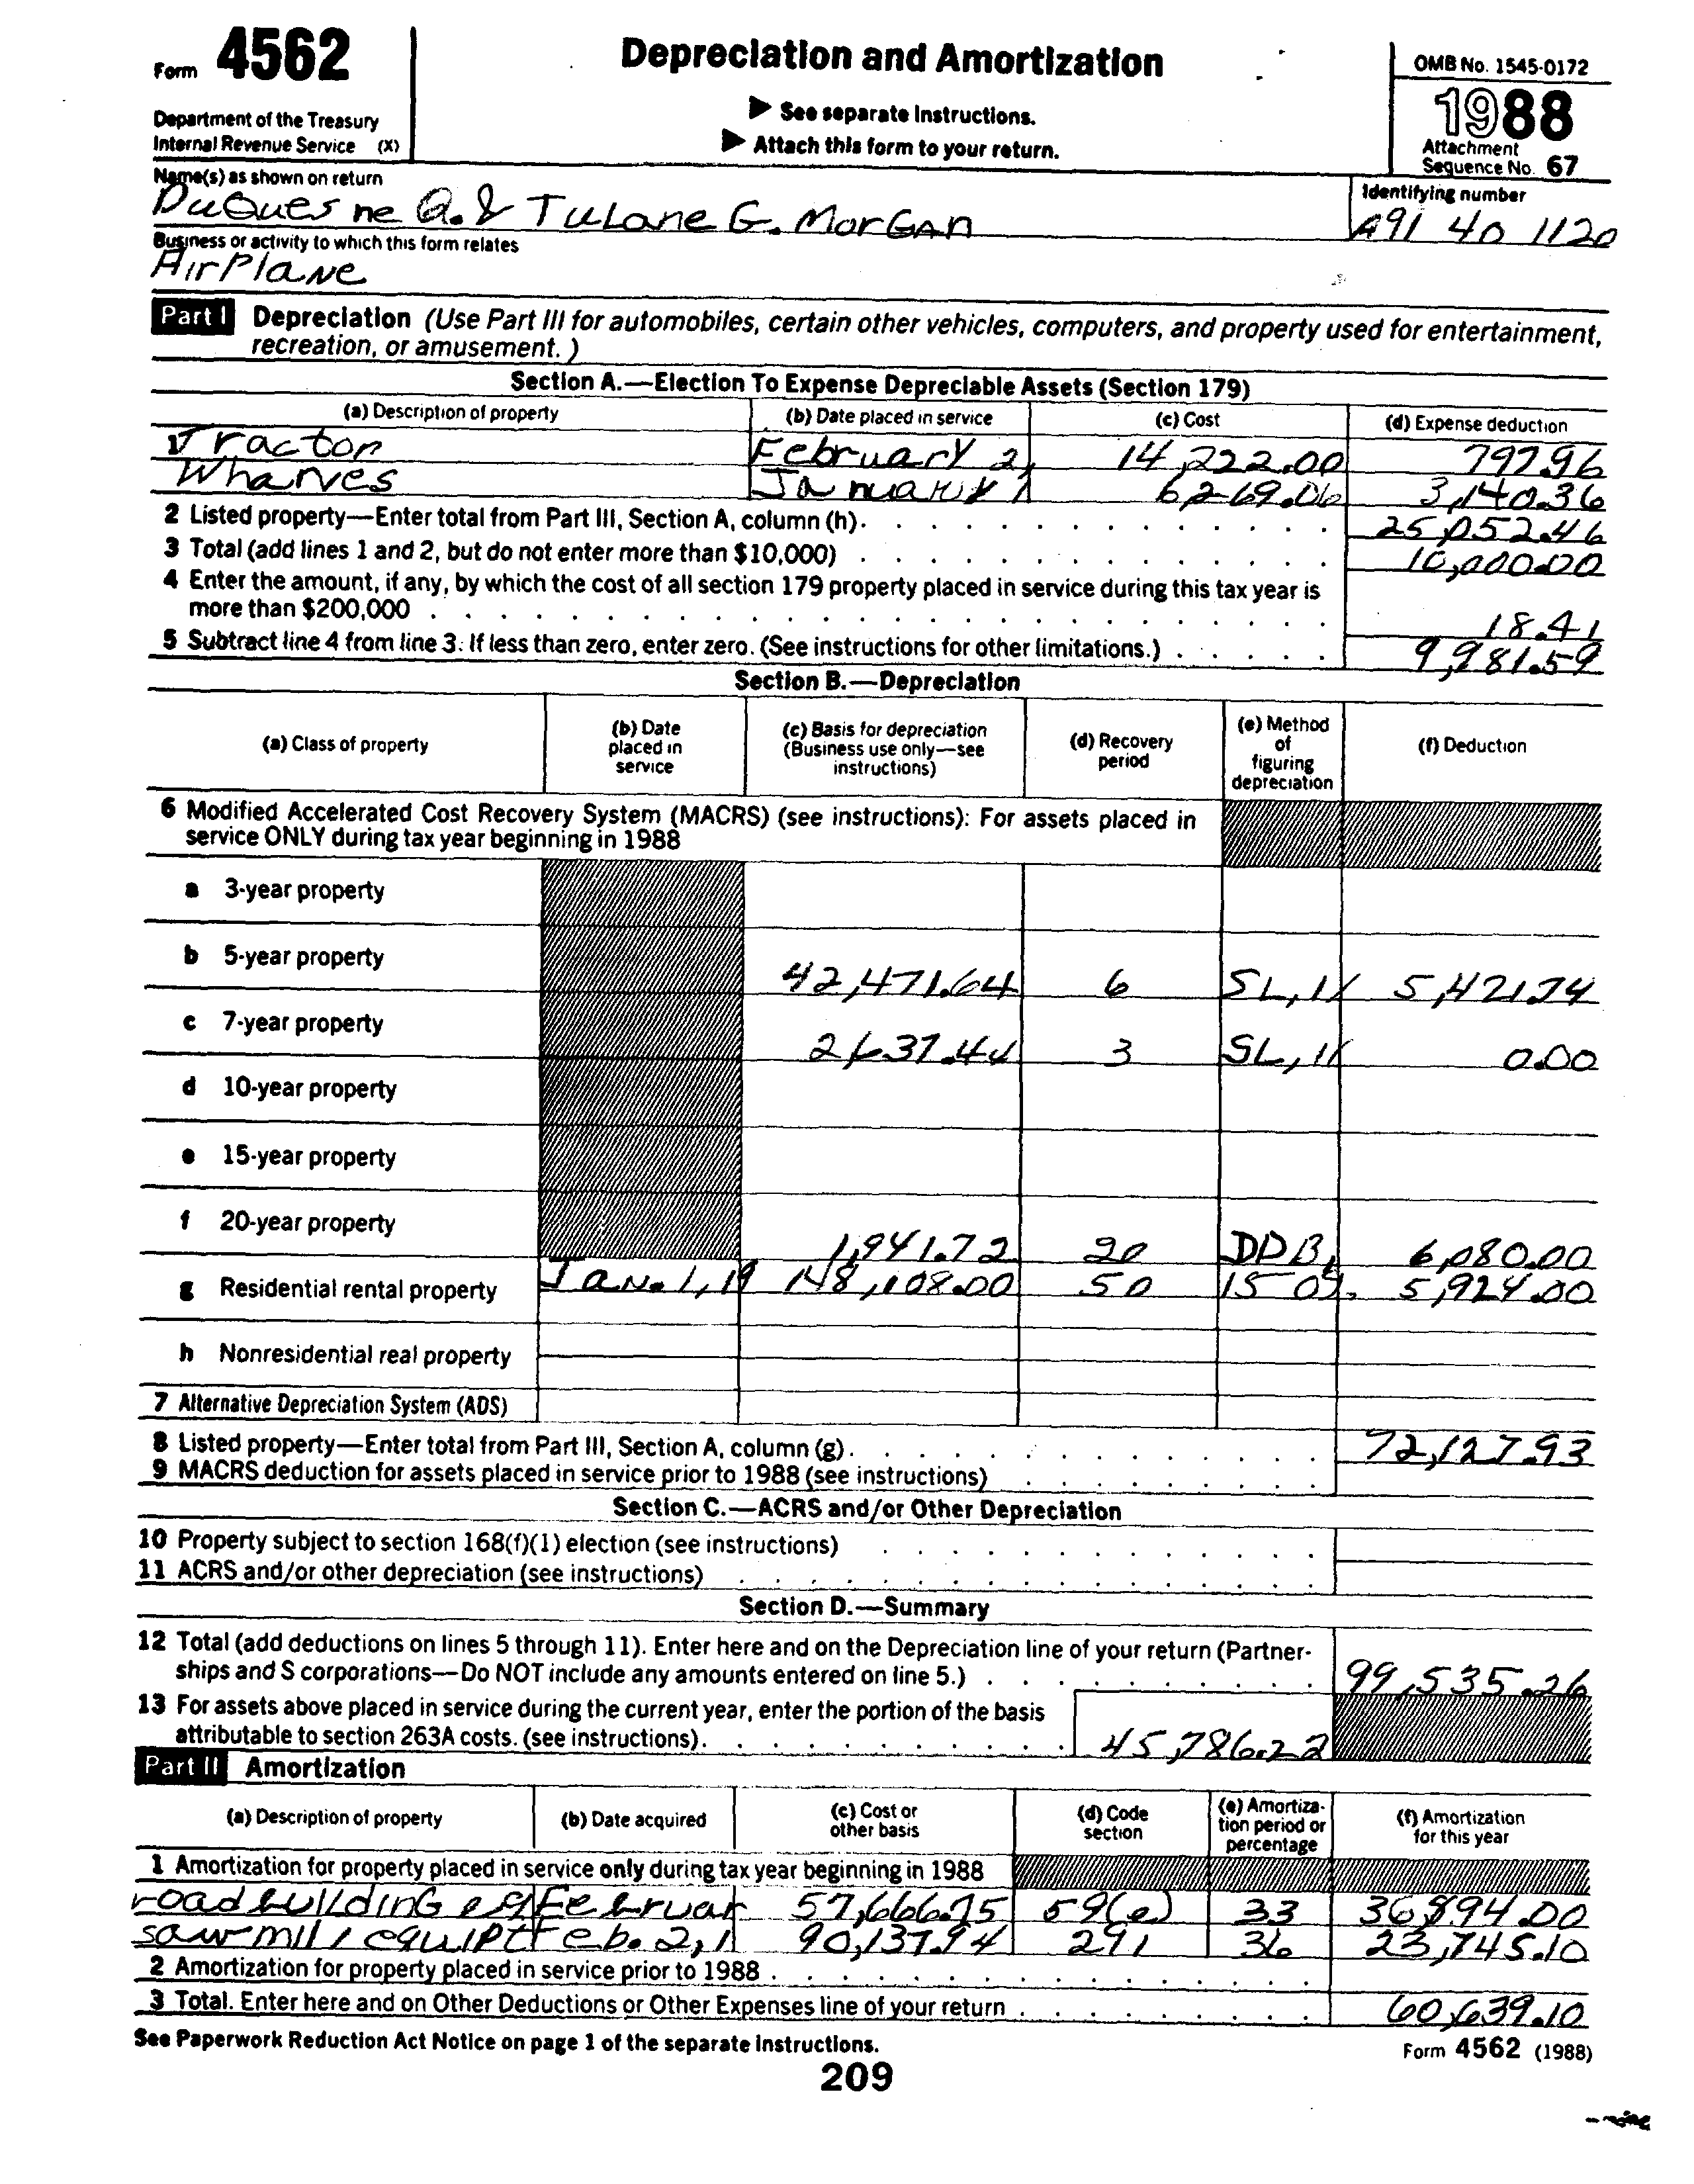 Form 4562
Depreciation and Amortization
OMB No. 1545-0172
1988
Department of the Treasury
Internal Revenue Service (X)
▶ See separate Instructions.
▶ Attach this form to your return.
Attachment
Sequence No. 67
Name(s) as shown on return
DuQuesne Q. & TuLane G. MorGAn
Identifying number
691 40 1120
Business or activity to which this form relates
AirPlaNe
Part I Depreciation (Use Part III for automobiles, certain other vehicles, computers, and property used for entertainment,
recreation, or amusement.)
Section A.—Election To Expense Depreciable Assets (Section 179)
(a) Description of property (b) Date placed in service (c) Cost (d) Expense deduction
1 Tractor February 2, 14,222.00 797.96
Wharves January 1 6,269.06 3,140.36
2 Listed property—Enter total from Part III, Section A, column (h). 25,052.46
3 Total (add lines 1 and 2, but do not enter more than $10,000) 10,000.00
4 Enter the amount, if any, by which the cost of all section 179 property placed in service during this tax year is
more than $200,000 18.41
5 Subtract line 4 from line 3. If less than zero, enter zero. (See instructions for other limitations.) 9,981.59
Section B.—Depreciation
(a) Class of property (b) Date placed in service (c) Basis for depreciation (Business use only—see instructions) (d) Recovery period (e) Method of figuring depreciation (f) Deduction
6 Modified Accelerated Cost Recovery System (MACRS) (see instructions): For assets placed in
service ONLY during tax year beginning in 1988
a 3-year property
b 5-year property 42,471.64 6 SL, 5,421.74
c 7-year property 2,637.44 3 SL, 0.00
d 10-year property
e 15-year property
f 20-year property 1,941.72 20 DDB, 6,080.00
g Residential rental property Jan. 1, 19 148,108.00 50 5,924.00
h Nonresidential real property
7 Alternative Depreciation System (ADS)
8 Listed property—Enter total from Part III, Section A, column (g). 72,127.93
9 MACRS deduction for assets placed in service prior to 1988 (see instructions)
Section C.—ACRS and/or Other Depreciation
10 Property subject to section 168(f)(1) election (see instructions)
11 ACRS and/or other depreciation (see instructions)
Section D.—Summary
12 Total (add deductions on lines 5 through 11). Enter here and on the Depreciation line of your return (Partner-
ships and S corporations—Do NOT include any amounts entered on line 5.) 99,535.26
13 For assets above placed in service during the current year, enter the portion of the basis
attributable to section 263A costs. (see instructions). 45,786.22
Part II Amortization
(a) Description of property (b) Date acquired (c) Cost or other basis (d) Code section (e) Amortization period or percentage (f) Amortization for this year
1 Amortization for property placed in service only during tax year beginning in 1988
roadbuilding eq Februar 57,666.75 59(e) 33 36,894.00
sawmill equipt Feb. 2, 1 90,137.94 291 36 23,745.10
2 Amortization for property placed in service prior to 1988
3 Total. Enter here and on Other Deductions or Other Expenses line of your return 60,639.10
See Paperwork Reduction Act Notice on page 1 of the separate instructions.
Form 4562 (1988)
209